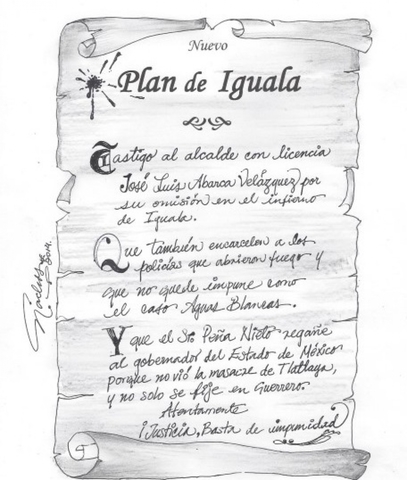 Nuevo
Plan de Iguala
Castigo al alcalde con licencia
José Luis Abarca Velázquez por
su omisión en el infierno
de Iguala.
Que también encarcelen a los
policías que abrieron fuego y
que no quede impune como
el caso Aguas Blancas.
Y que el Sr. Peña Nieto regañe
al gobernador del Estado de México
porque no vió la masacre de Tlatlaya,
y no solo se fije en Guerrero.
Atentamente
¡Justicia, Basta de impunidad!
2014.